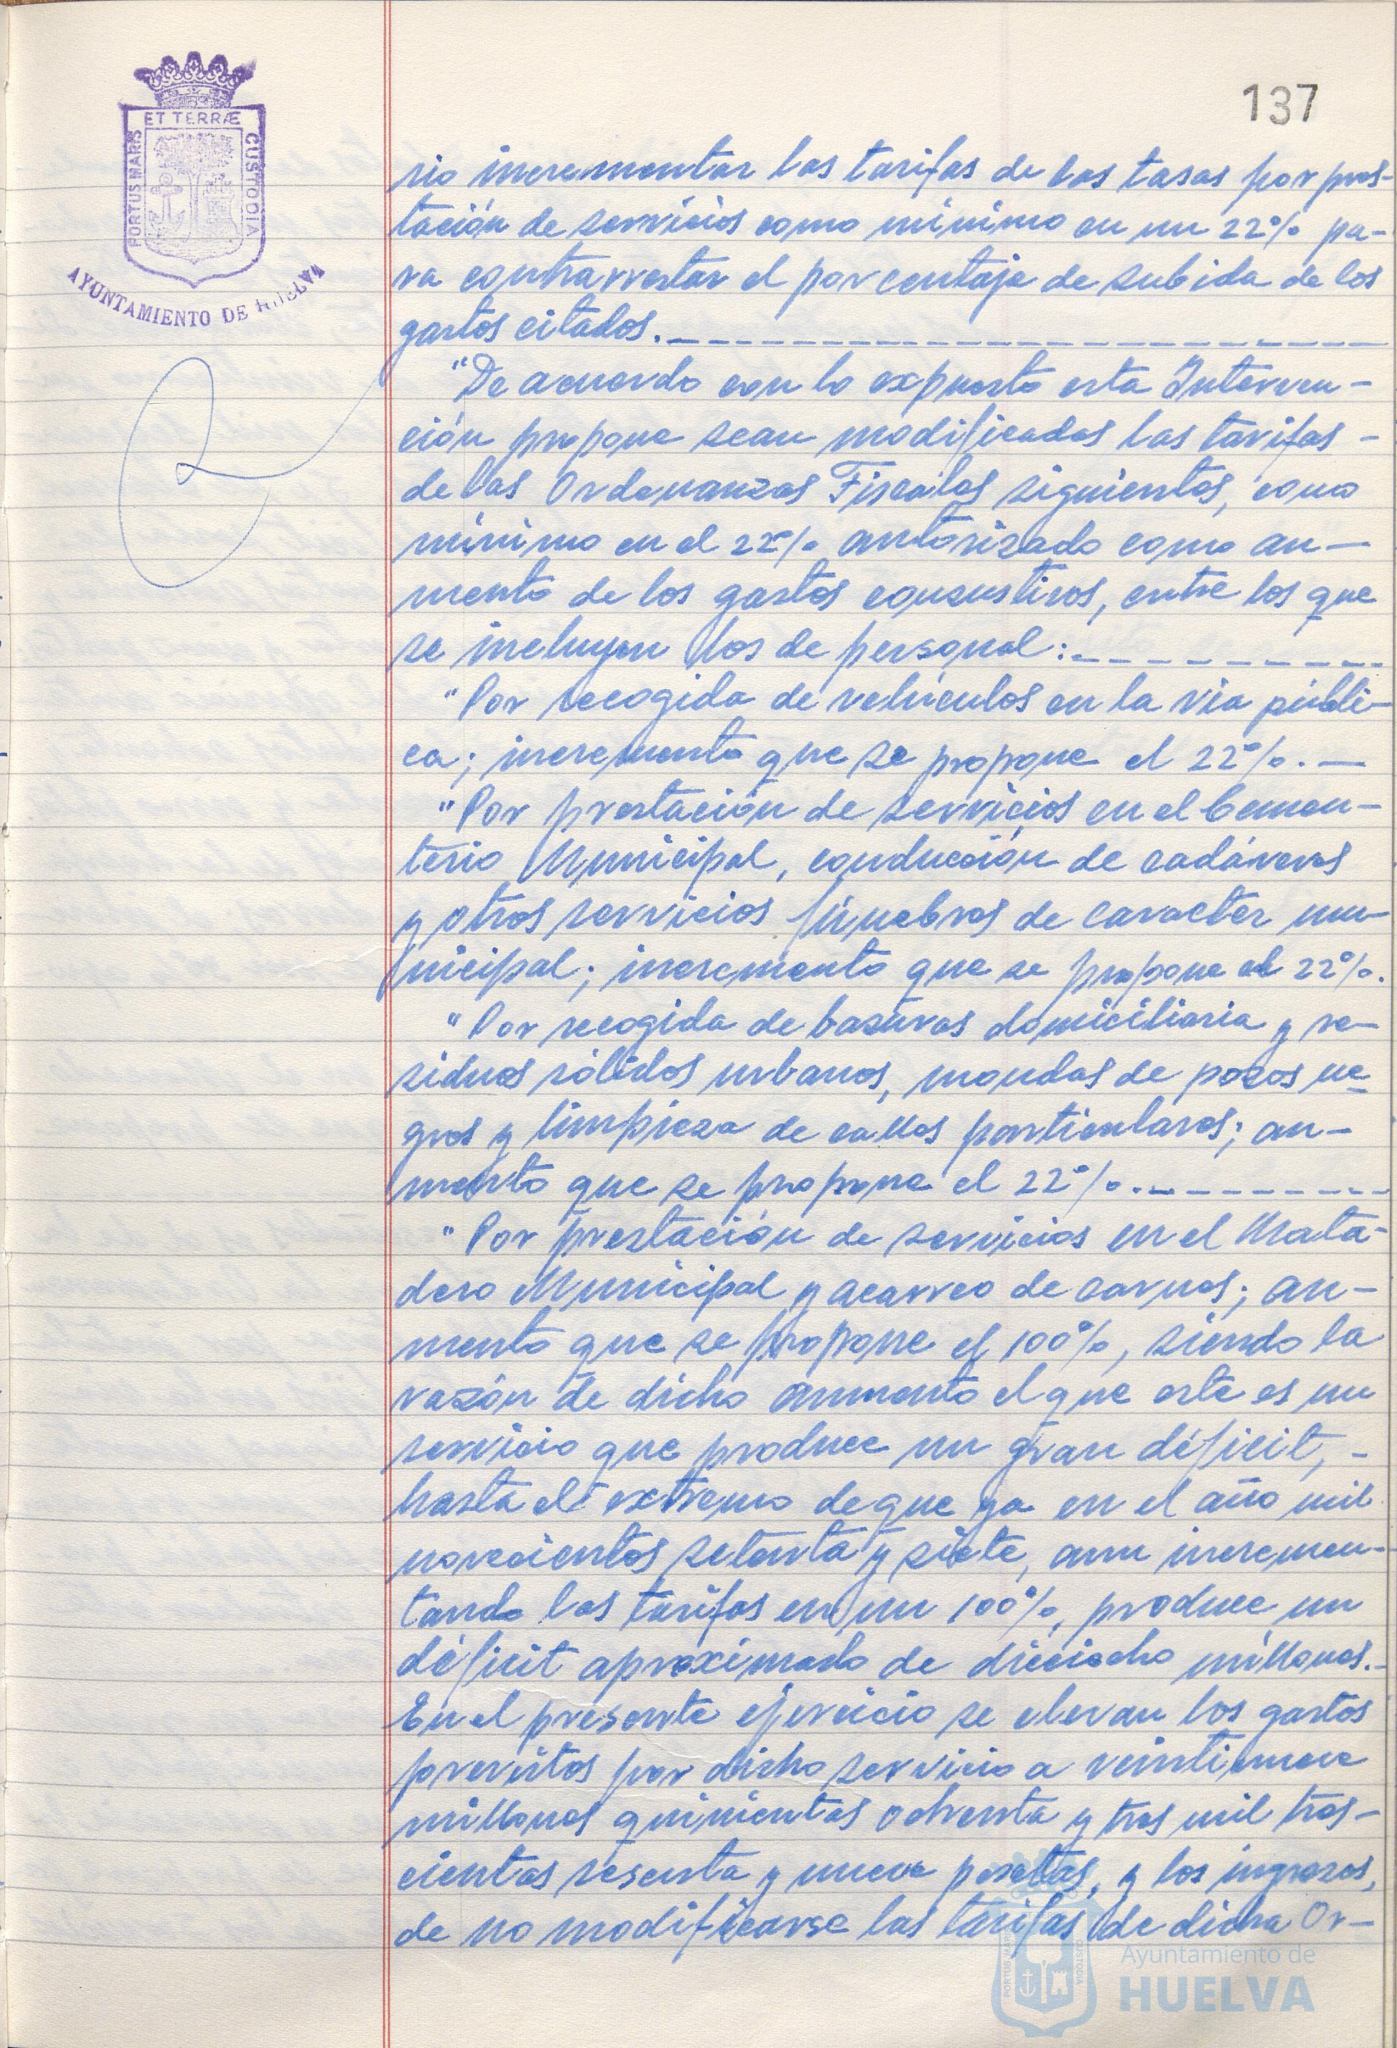 137
ET TERRÆ
PORTUS MARIS
CUSTODIA
AYUNTAMIENTO DE HUELVA
rio incrementar las tarifas de las tasas por pres-
tación de servicios como mínimo en un 22% pa-
ra contrarrestar el porcentaje de subida de los
gastos citados.
"De acuerdo con lo expuesto esta Interven-
ción propone sean modificadas las tarifas -
de las Ordenanzas Fiscales siguientes, como
mínimo en el 22% autorizado como au-
mento de los gastos consuntivos, entre los que
se incluyen los de personal:
"Por recogida de vehículos en la vía públi-
ca; incremento que se propone el 22%. —
"Por prestación de servicios en el Cemen-
terio Municipal, conducción de cadáveres
y otros servicios fúnebres de caracter mu-
nicipal; incremento que se propone el 22%.
"Por recogida de basuras domiciliaria y re-
siduos sólidos urbanos, mondas de pozos ne-
gros y limpieza de calles particulares; au-
mento que se propone el 22%.
"Por prestación de servicios en el Mata-
dero Municipal y acarreo de carnes; au-
mento que se propone el 100%, siendo la
razón de dicho aumento el que este es un
servicio que produce un gran déficit, -
hasta el extremo de que ya en el año mil
novecientos setenta y siete, aun incremen-
tando las tarifas en un 100%, produce un
déficit aproximado de dieciocho millones.-
En el presente ejercicio se elevan los gastos
previstos por dicho servicio a veintinueve
millones quinientas ochenta y tres mil tres-
cientas sesenta y nueve pesetas, y los ingresos,
de no modificarse las tarifas de dicha Or-
PORTUS MARIS
CUSTODIA
Ayuntamiento de
HUELVA